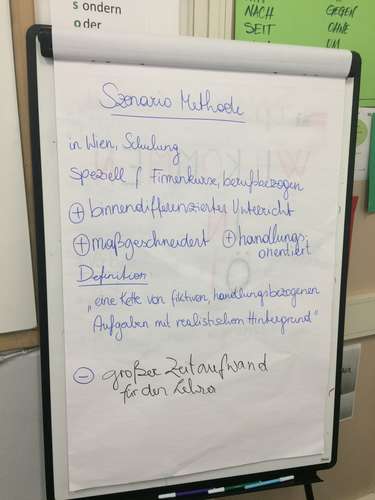 s ondern
o der
NACH
SEIT
GEGEN
OHNE
UM
Szenario Methode
in Wien, Schulung
speziell f Firmenkurse, berufsbezogen
⊕ binnendifferenzierter Unterricht
⊕ maßgeschneidert ⊕ handlungs-
orientiert
Definition
„eine Kette von fiktiven, handlungsbezogenen
Aufgaben mit realistischem Hintergrund"
⊖ großer Zeitaufwand
für den Lehrer